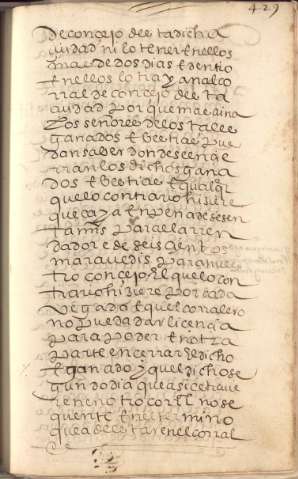 429
de concejo de esta dicha
ciudad ni lo tener en ellos
mas de dos dias e dentro
en ellos lo traya al co
rral de concejo de esta
ciudad porque mas ayna
los señores de los tales
ganados e bestias pue
dan saber donde se encie
rran los dichos gana
dos e bestias e qualqr
que lo contrario hisiere
que caya en pena de sesen
ta mrs para el arren
dador e de seiscientos
maravedis para nues
tro concejo el que lo con
trario hiziere por cada
vegada e que el corralero
no pueda dar licencia
para poder en otra
parte encerrar el dicho
ganado y que el dicho se
gundo dia que asi estuvie
re en otro corral no se
quente en el termino
que a de estar en el corral